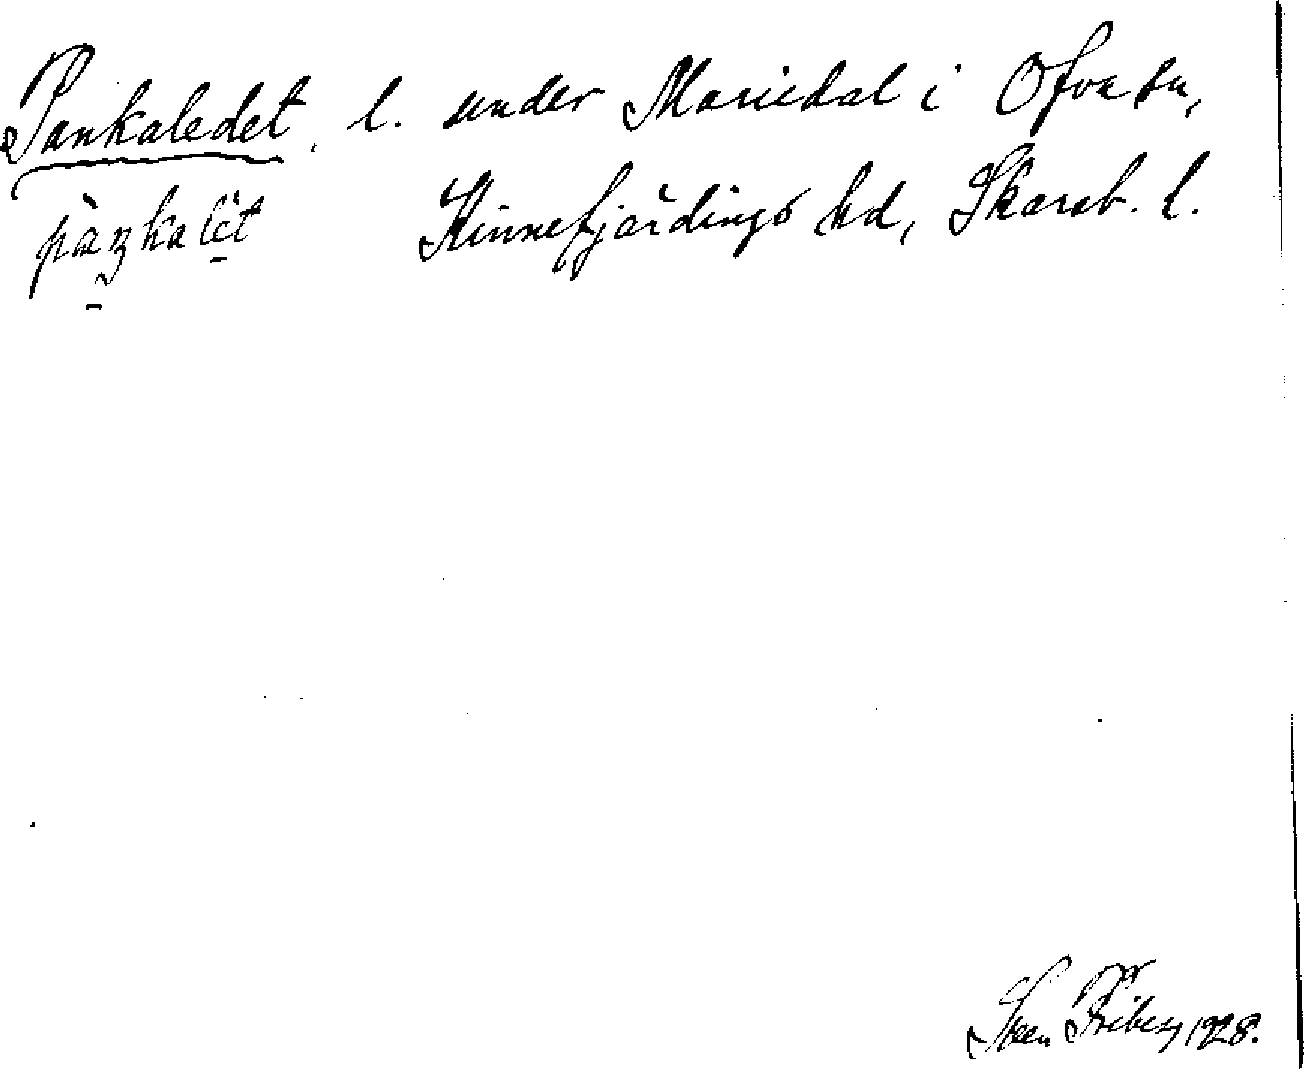 Pankaledet, l. under Mariedal i Ofva sn,
pàŋkalèt Kinnefjärdings hd, Skarab. l.
Sven Friberg 1928.